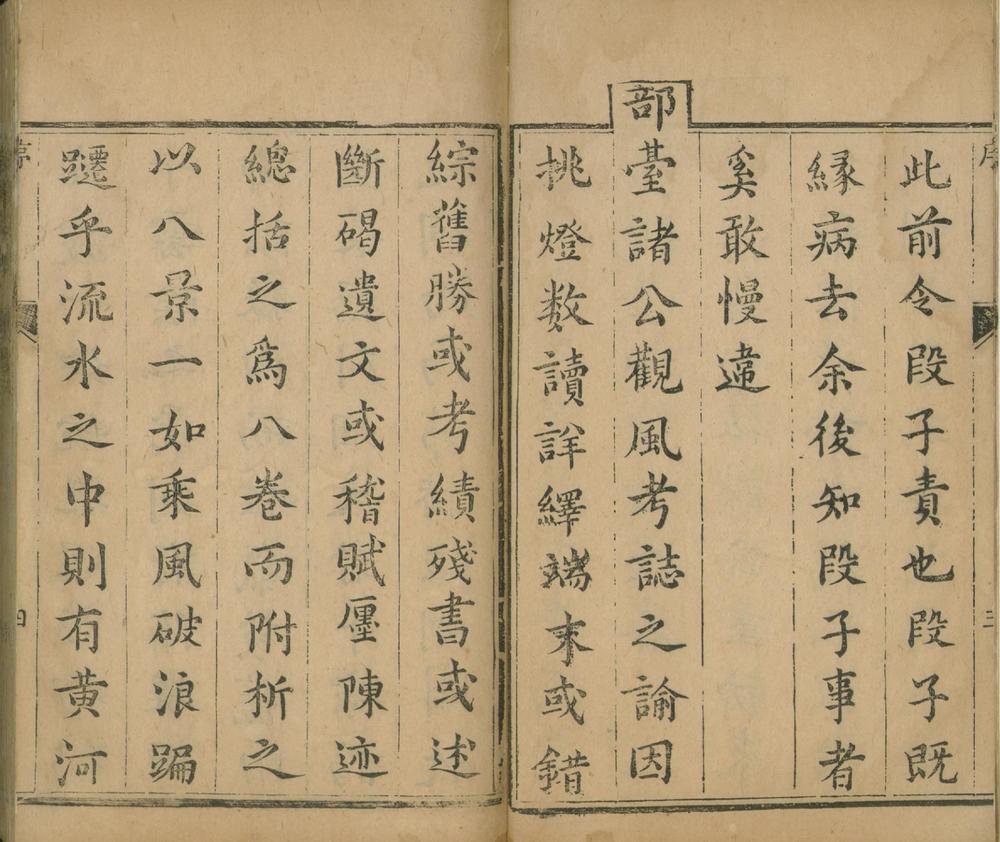 此前令段子責也段子既
縁病去余後知段子事者
奚敢慢違
部臺諸公觀風考誌之諭因
挑燈数讀詳繹端末或錯
綜舊勝或考績殘書或述
斷碣遺文或稽賦厘陳迹
總括之爲八卷而附析之
以八景一如乘風破浪蹁
躚乎流水之中則有黄河
四